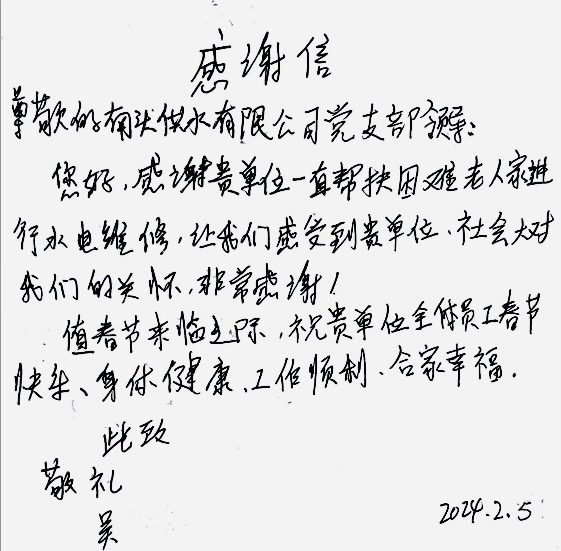 感谢信
尊敬的南头供水有限公司党支部领导:
您好,感谢贵单位一直帮扶困难老人家进
行水电维修,让我们感受到贵单位、社会大对
我们的关怀,非常感谢!
值春节来临之际,祝贵单位全体员工春节
快乐、身体健康、工作顺利、合家幸福.
此致
敬礼
吴
2024.2.5